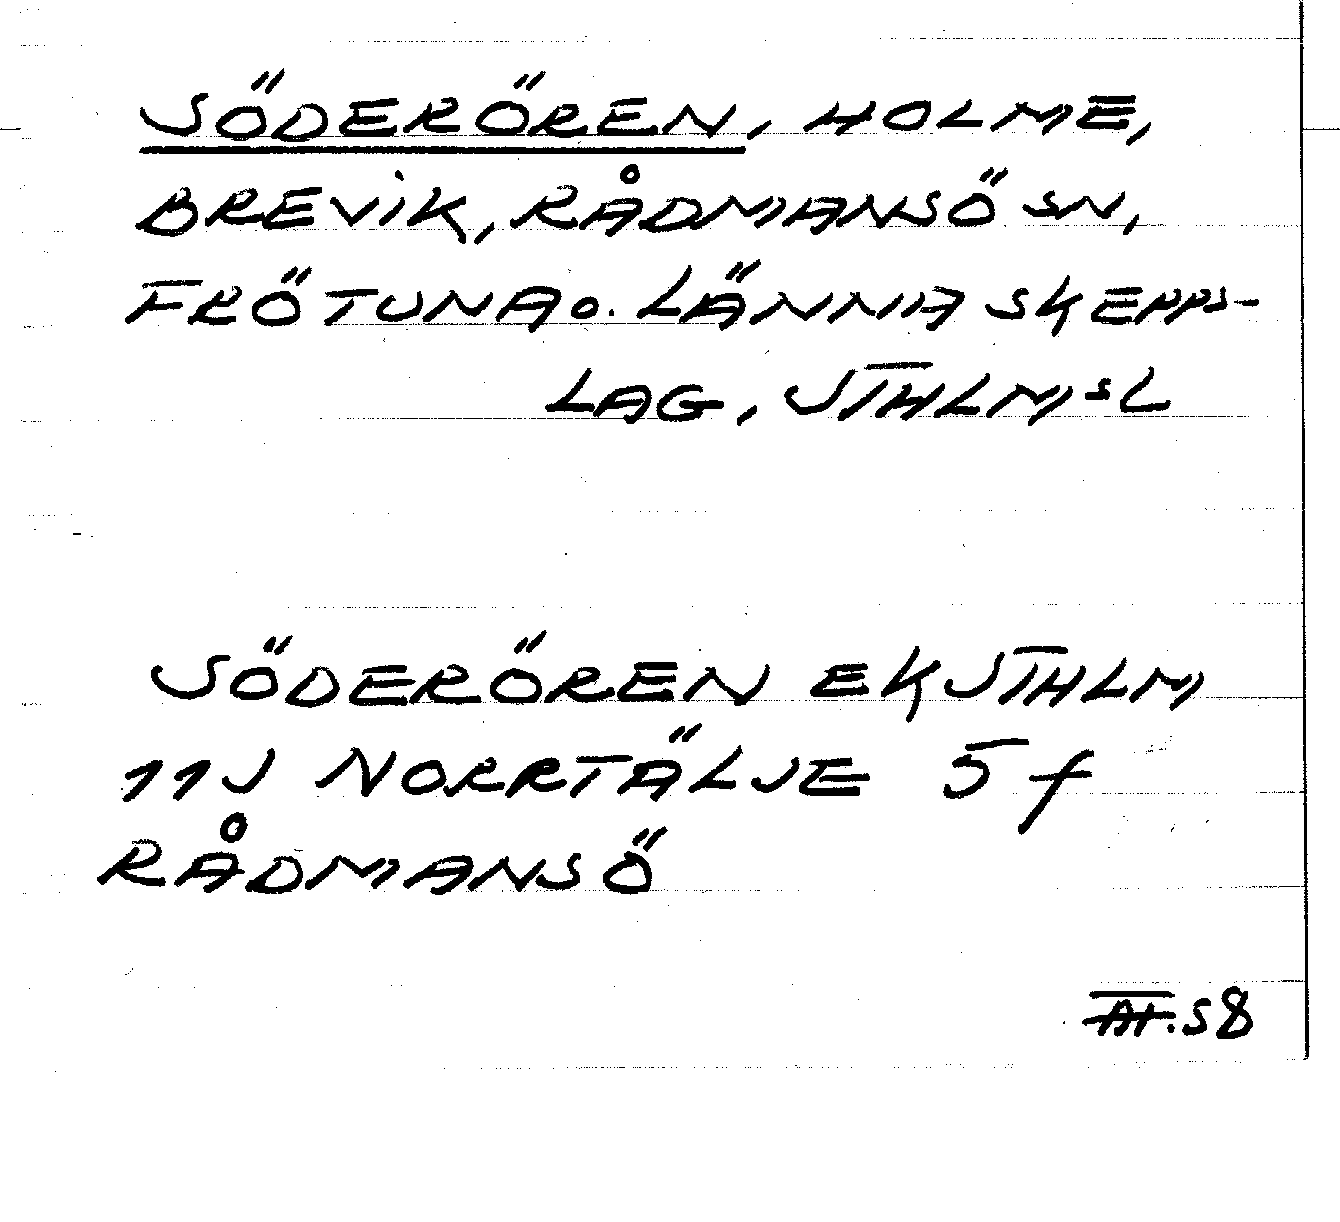 SÖDERÖREN, HOLME,
BREVIK, RÅDMANSÖ SN,
FRÖTUNA O. LÄNNA SKEPPS-
LAG, STHLMSL
SÖDERÖREN EKSTHLM
11J NORRTÄLJE 5 f
RÅDMANSÖ
58